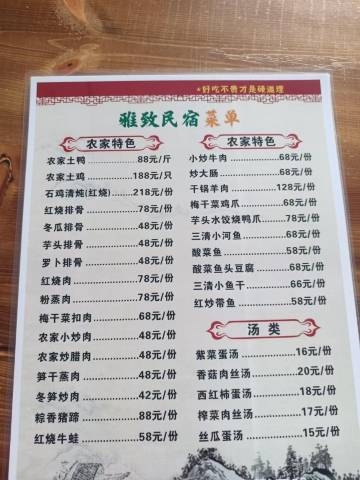 *好吃不贵才是硬道理
雅致民宿菜单
农家特色
农家土鸭 88元/斤
农家土鸡 188元/只
石鸡清炖(红烧) 218元/份
红烧排骨 78元/份
冬瓜排骨 48元/份
芋头排骨 48元/份
萝卜排骨 48元/份
红烧肉 78元/份
粉蒸肉 78元/份
梅干菜扣肉 68元/份
农家小炒肉 48元/份
农家炒腊肉 48元/份
笋干蒸肉 48元/份
冬笋炒肉 42元/份
粽香猪蹄 88元/份
红烧牛蛙 58元/份
农家特色
小炒牛肉 68元/份
炒大肠 68元/份
干锅羊肉 128元/份
梅干菜鸡爪 68元/份
芋头水饺烧鸭爪 78元/份
三清小河鱼 68元/份
酸菜鱼 58元/份
酸菜鱼头豆腐 68元/份
三清小鱼干 66元/份
红炒带鱼 58元/份
汤 类
紫菜蛋汤 16元/份
香菇肉丝汤 20元/份
西红柿蛋汤 18元/份
榨菜肉丝汤 17元/份
丝瓜蛋汤 15元/份